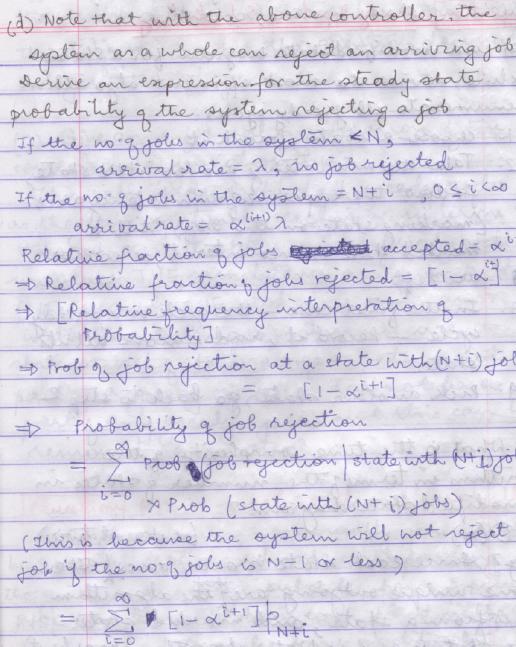 (d) Note that with the above controller, the
system as a whole can reject an arriving job
Derive an expression for the steady state
probability of the system rejecting a job
If the no. of jobs in the system < N,
arrival rate = λ, no job rejected
If the no. of jobs in the system = N+i , 0 ≤ i < ∞
arrival rate = α^(i+1) λ
Relative fraction of jobs accepted = α^i
⇒ Relative fraction of jobs rejected = [1 - α^i+1]
⇒ [Relative frequency interpretation of
Probability]
⇒ Prob of job rejection at a state with (N+i) jo
= [1 - α^i+1]
⇒ Probability of job rejection
= ∞ Σ i=0 Prob (job rejection | state with (N+i) jo
× Prob (state with (N+i) jobs)
(This is because the system will not reject
job if the no. of jobs is N-1 or less)
= ∞ Σ i=0 [1 - α^i+1] p_N+i